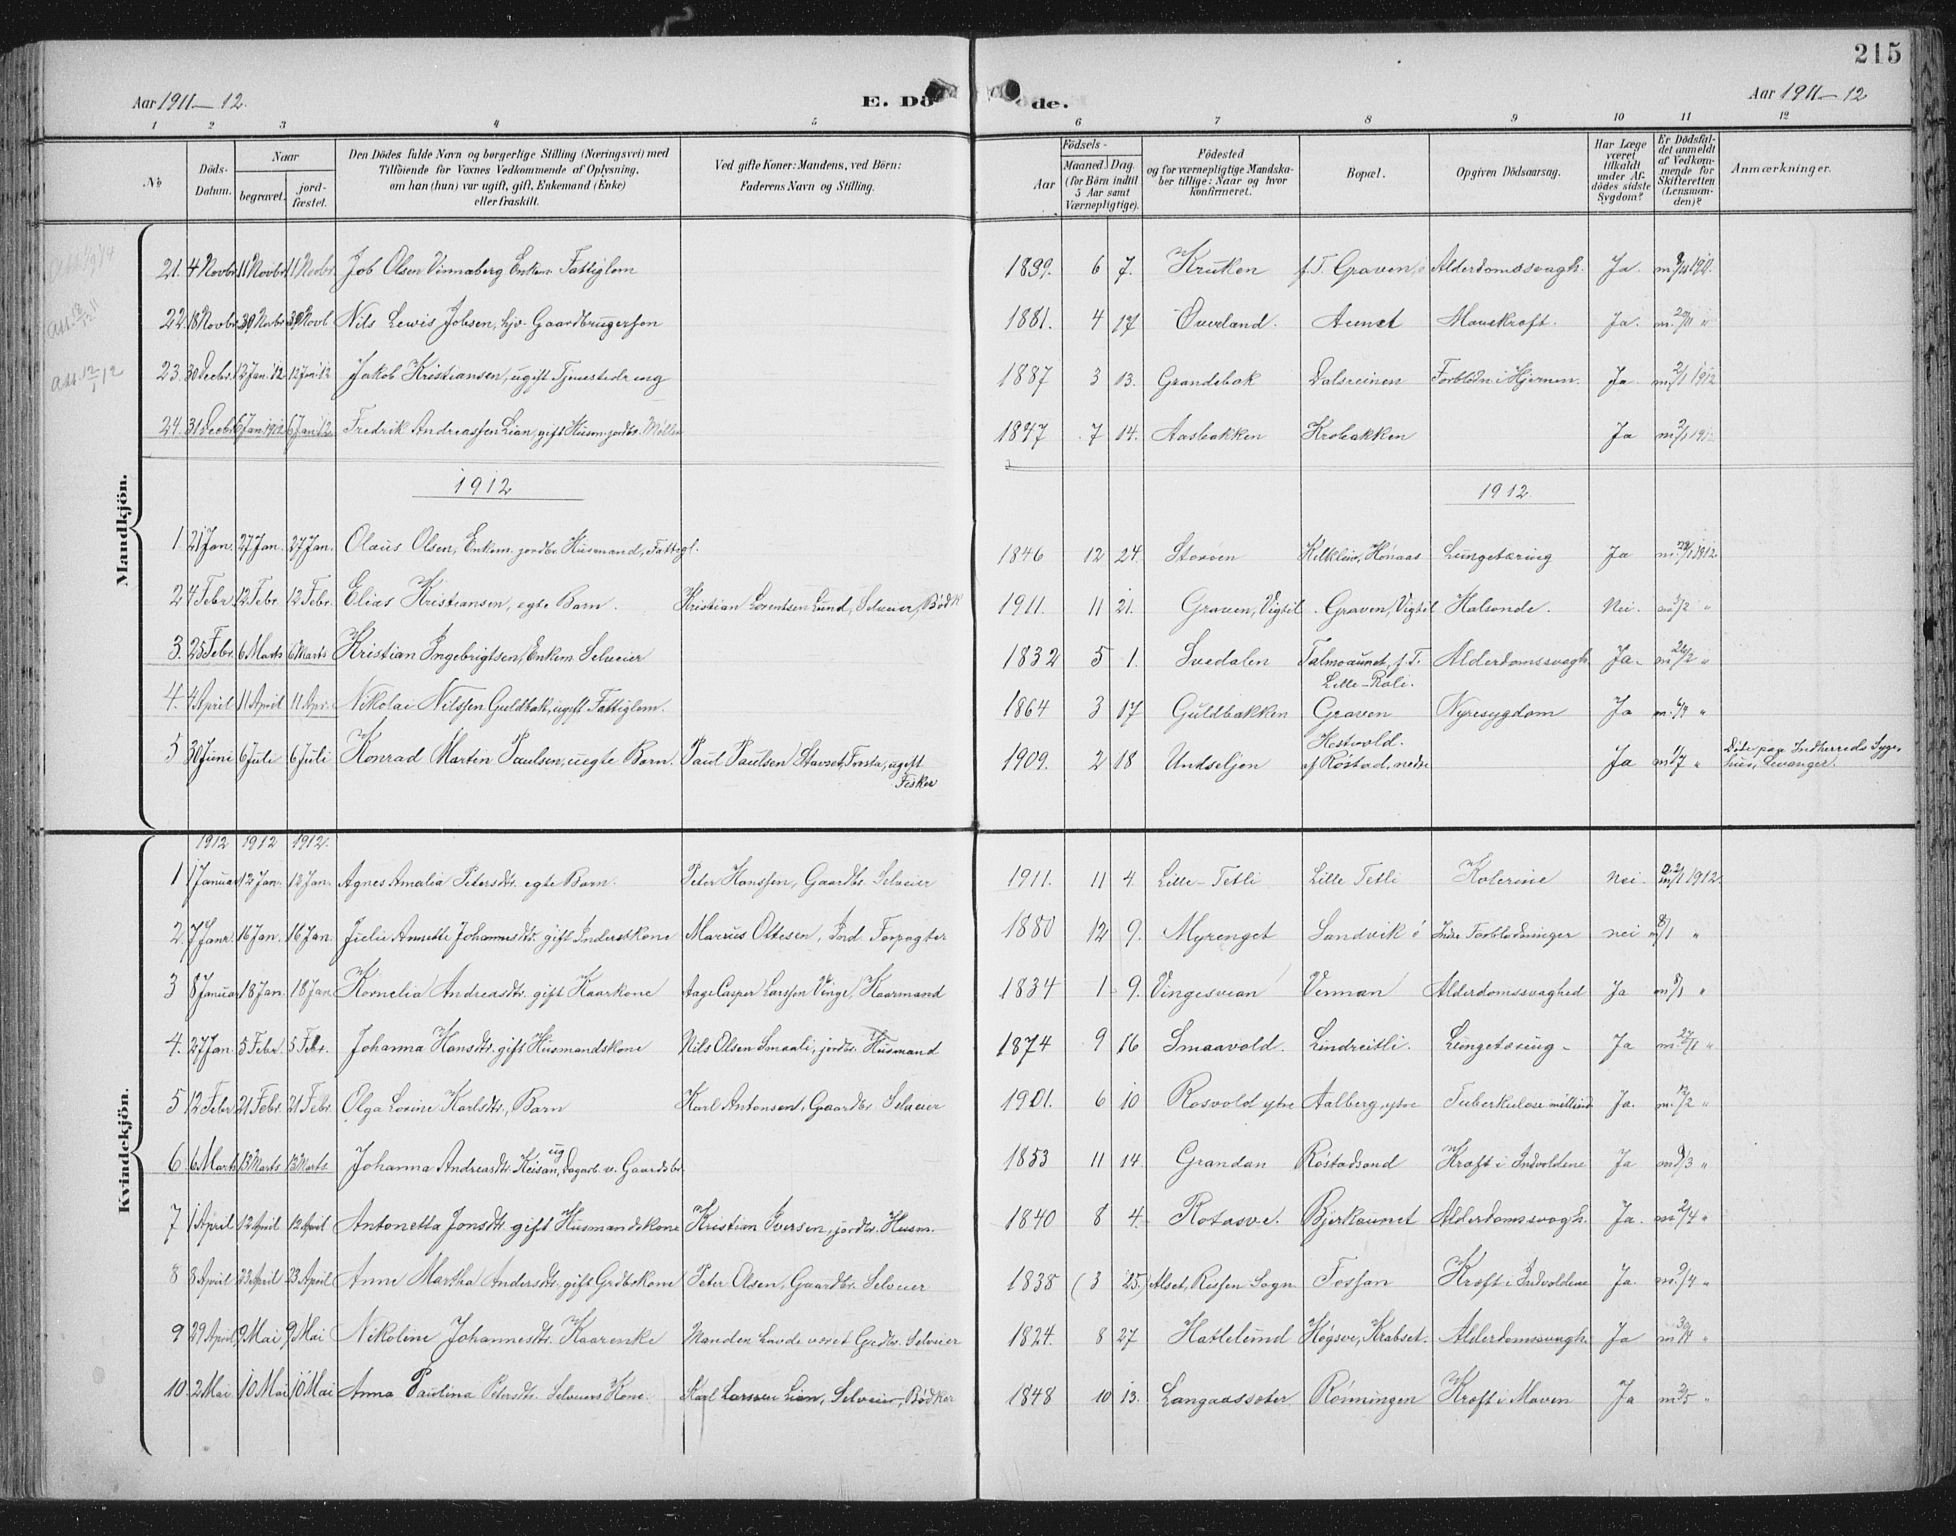 215
Aar 1911–12. E. Dö de. Aar 1911–12
1 2 3 4 5 6 7 8 9 10 11 12
No
Döds-Datum.
Naar
begravet.
jord-fæstet.
Den Dödes fulde Navn og borgerlige Stilling (Næringsvei) med
Tilföiende for Voxnes Vedkommende af Oplysning,
om han (hun) var ugift, gift, Enkemand (Enke)
eller fraskilt.
Ved gifte Koner: Mandens, ved Börn:
Faderens Navn og Stilling.
Födsels-
Aar
Maaned. Dag
(for Börn indtil
5 Aar samt
Værnepligtige).
Födested
og for værnepligtige Mandska-
ber tillige: Naar og hvor
konfirmeret.
Bopæl.
Opgiven Dödsaarsag.
Har Læge
været
tilkaldt
under Af-
dödes sidste
Sygdom?
Er Dödsfal-
det anmeldt
af Vedkom-
mende for
Skifteretten
(Lensman-
den)?
Anmærkninger.
Mandkjön.
21. 4 Novbr 11 Novbr 11 Novbr Job Olsen Vinnaberg Enkem. Fattiglem 6 7. Kruken f. T. Graven, Alderdomssvagh. Ja.
22. 18 Novbr 30 Novbr 30 Novb Nils Lewis Jobsen, hjv. Gaardbrugersøn 1881. 4 17 Overland. Aunet Mavekræft. Ja. m. 20/11 "
23. 30 Decbr. 12 Jan. 12 12 Jan. 12 Jakob Kristiansen, ugift Tjenestedreng 1887 3 03. Grandebak Dalsreinen Forblødn i Hjernen. Ja m. 2/1 1912
24. 31 Decbr 6 Jan. 1912 6 Jan. 12 Fredrik Andreassen Lian, gift Husm. jordbr. Møller 1847 7 04. Aasbakken Krobakken Ja
1912 1912.
1. 21 Jan. 27 Jan. 27 Jan. Olaus Olsen, Enkem. jordbr. Husmand, Fattigl. 1846 12 24. Storöen Lungetæring Ja
2 4 Febr 12 Febr 12 Febr. Elias Kristiansen, egte Barn. Kristian Lorentsen Lund, Selveier, Bødk 1911. 11 21. Graven, Vigtil Graven, Vigtil Halsonde. Nei.
3. 25 Febr. 6 Marts 6 Marts Kristian Ingebrigtsen, Enkem. Selveier 1832 5 1. Svedalen Talmoaunet, f. T. Alderdomssvagh. Ja.
Lille-Roli.
4. 4 April 11 April 11 Apr. Nikolai Nilssen Guldbak, ugift Fattiglem. 1864 3 17 Guldbakken Graven Nyresygdom Ja
5 30 Juni 6 Juli 6 Juli Konrad Martin Paulsen, uegte Barn. Paul Paulsen Stavset, Frosta, ugift 1909. 2 18 Undseljen Hestvold. Ja m. 1/7 " Døde paa Indherreds Syge-
Fisker af Røstad, nedre hus, Levanger.
Kvindekjön.
1912 1912 1912.
1 1 Januar 12 Jan. 12 Jan. Agnes Amalia Petersdtr. egte Barn. Peter Hanssen, Gaardbr. Selveier 1911. 11 4. Lille-Tetli Lille Tetli Kolerine Nei.
2. 7 Janr. 16 Jan. 16 Jan. Julie Annette Johannesdtr. gift Inderstkone Marius Ottesen, Ind. Forpagter 1880 12 9. Myrenget Sandvik Indre Forblødninger nei 8/1 "
3 8 Januar 18 Jan. 18 Jan Kornelia Andreasdtr. gift Kaarkone Aage Casper Larssen Vinge, Kaarmand 1834 1 9. Vingesvean Vennan Alderdomssvaghed Ja m 8/1 "
4. 27 Jan. 5 Febr. 5 Febr. Johanna Hansdtr. gift Husmandskone Nils Olsen Smaali, jordbr. Husmand 1874 9 16 Smaavold. Lindreitli. Lungetæring Ja m. 27/1 "
5 12 Febr 21 Febr. 21 Febr. Olga Lovine Karlsdtr, Barn Karl Antonsen, Gaardbr. Selveier 1901. 6 10 Rosvold ytre Aalberg, ytre Ja. m. 12/2 "
6. 6 Marts 13 Marts 13 Marts. Johanna Andreasdtr. Keisan, ug. Dagarb. v. Gaardsbr. 1853 11 14. Grandan Røstadsand Kræft i Indvoldene Ja m. 9/3 "
7 1 April 12 April 12 April Antonetta Jonsdtr. gift Husmandskone Kristian Iversen, jordbr. Husm. 1840 8 4. Rotasve. Bjerkaunet Alderdomssvagh. Ja. m. 2/4 "
8 8 April 23 April 23 April Anne Martha Andersdtr. gift Grdbrskone Peter Olsen, Gaardbr. Selveier 1838 (3 25.) Alset, Rissen Sogn Fossan Kræft i Indvoldene Ja. m. 9/4 "
9 29 April 9 Mai 9 Mai Nikoline Johannesdtr. Kaarenke Manden havde været Grdbr. Selveier 1824. 8 27 Hattelund Høgsve, Krabset. Alderdomssvagh. Ja
10. 2 Mai 10 Mai 10 Mai Anna Paulina Petersdtr. Selveiers Kone. Karl Larssen Lian, Selveier, Bødker 1848 10 13. Langaassæter Rønningen Kræft i Maven Ja m 3/5 "